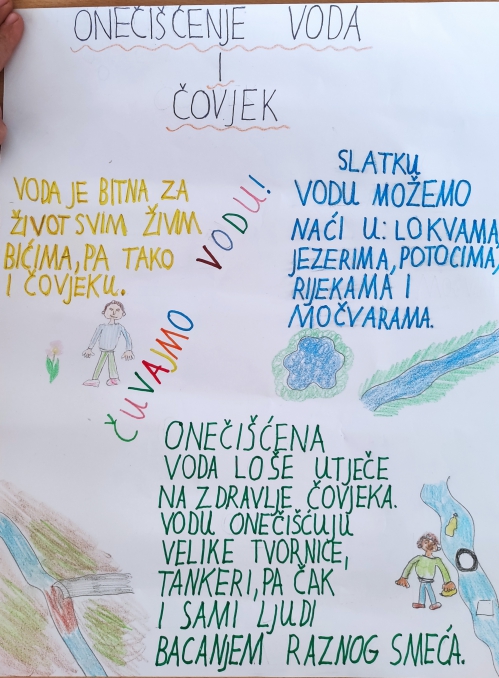 ONEČIŠĆENJE VODA
I
ČOVJEK
VODA JE BITNA ZA
ŽIVOT SVIM ŽIVIM
BIĆIMA, PA TAKO
I ČOVJEKU.
ČUVAJMO VODU!
SLATKU
VODU MOŽEMO
NAĆI U: LOKVAMA,
JEZERIMA, POTOCIMA,
RIJEKAMA I
MOČVARAMA.
ONEČIŠĆENA
VODA LOŠE UTJEČE
NA ZDRAVLJE ČOVJEKA.
VODU ONEČIŠĆUJU
VELIKE TVORNICE,
TANKERI, PA ČAK
I SAMI LJUDI
BACANJEM RAZNOG SMEĆA.